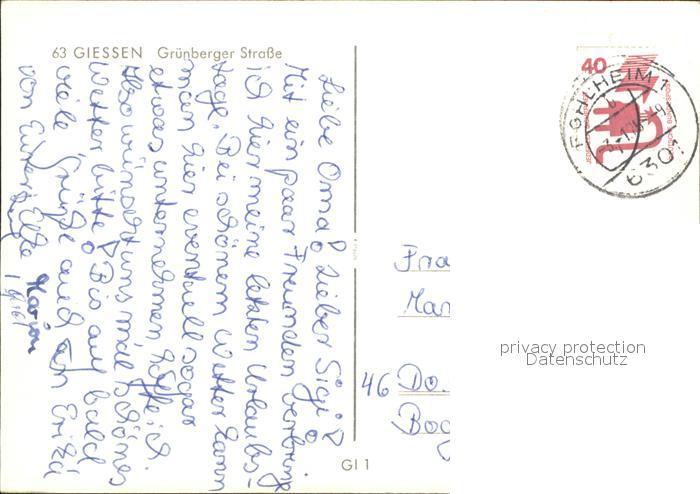 63 GIESSEN Grünberger Straße
Liebe Oma! Lieber Sigi!
Mit ein paar Freunden verbringe
ich hier meine letzten Urlaubs-
tage. Bei schönem Wetter kann
man hier eventuell sogar
etwas unternehmen, hoffe ich.
Also wünscht uns mal schönes
Wetter bitte! Bis auf bald
viele Grüße auch an Erika
von Eurer Elke
Marion
40
POHLHEIM 1
6301
Fra
Mar
46 Do.
Bog
privacy protection
Datenschutz
GI 1